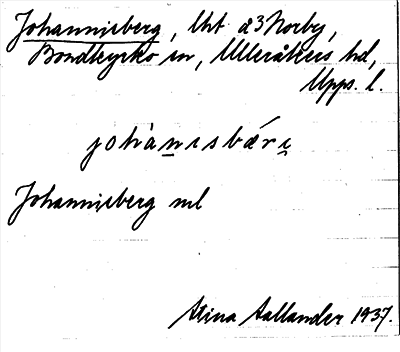 Johannisberg, lht å 3 Norby,
Bondkyrko sn, Ulleråkers hd,
Upps. l.
johànisbæri
Johannisberg ml
Stina Aallander 1937.